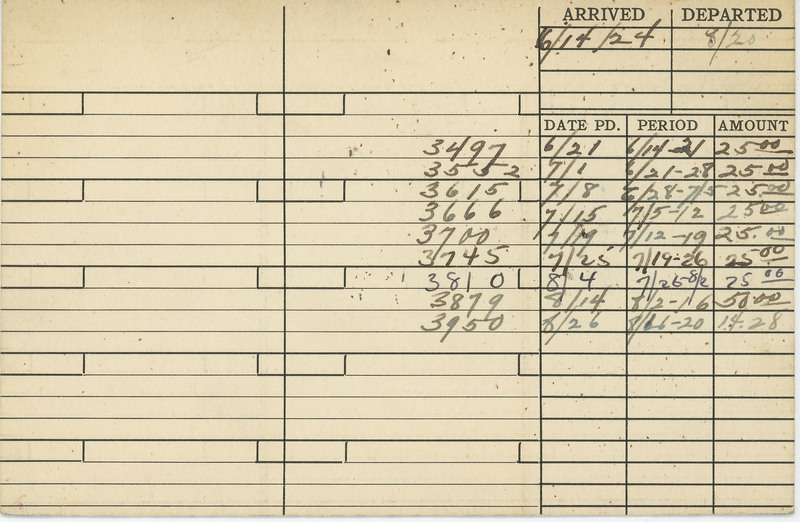 ARRIVED DEPARTED
6/14/24 8/20
DATE PD. PERIOD AMOUNT
3497 6/21 6/14-21 25.00
3552 7/1 6/21-28 25.00
3615 7/8 6/28-7/5 25.00
3666 7/15 7/5-12 25.00
3700 7/19 7/12-19 25.00
3745 7/25 7/19-26 25.00
3810 8/4 7/26-8/2 25.00
3879 8/14 8/2-16 50.00
3950 8/26 8/16-20 14.28